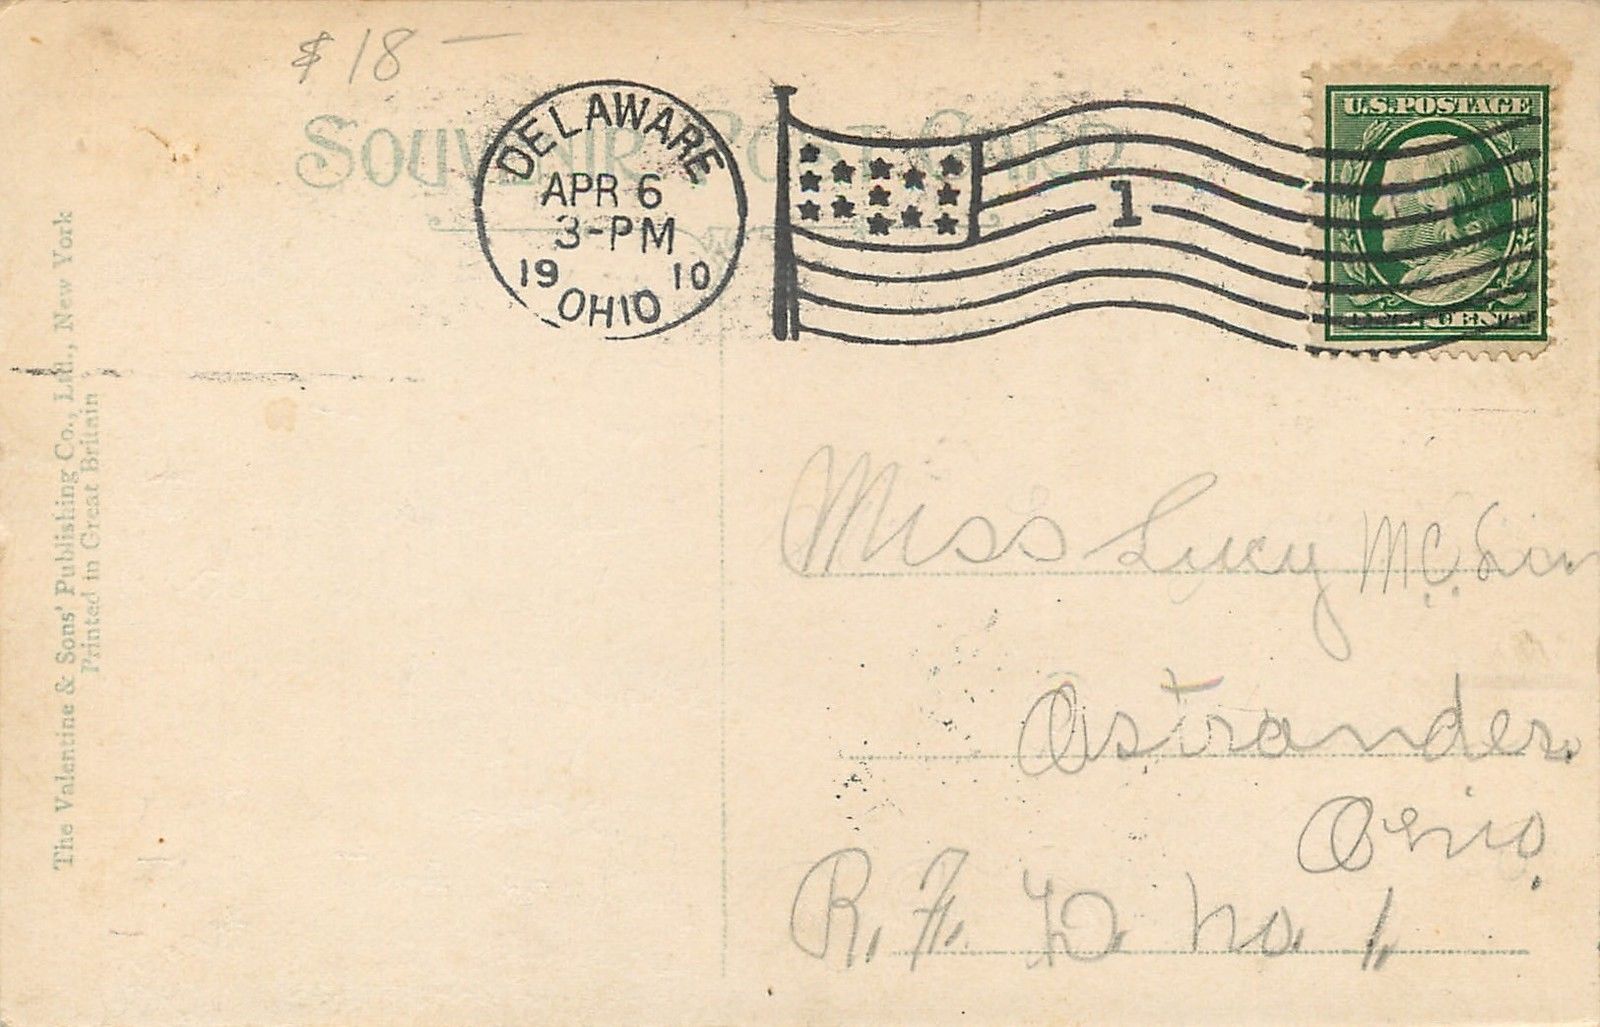 $18—
SOUVENIR POST CARD
DELAWARE
APR 6
3-PM
19 10
OHIO
1
U.S.POSTAGE
The Valentine & Sons' Publishing Co., Ltd., New York
Printed in Great Britain
Miss Lucy
Ostrander.
Ohio.
R. F. D. No. 1.